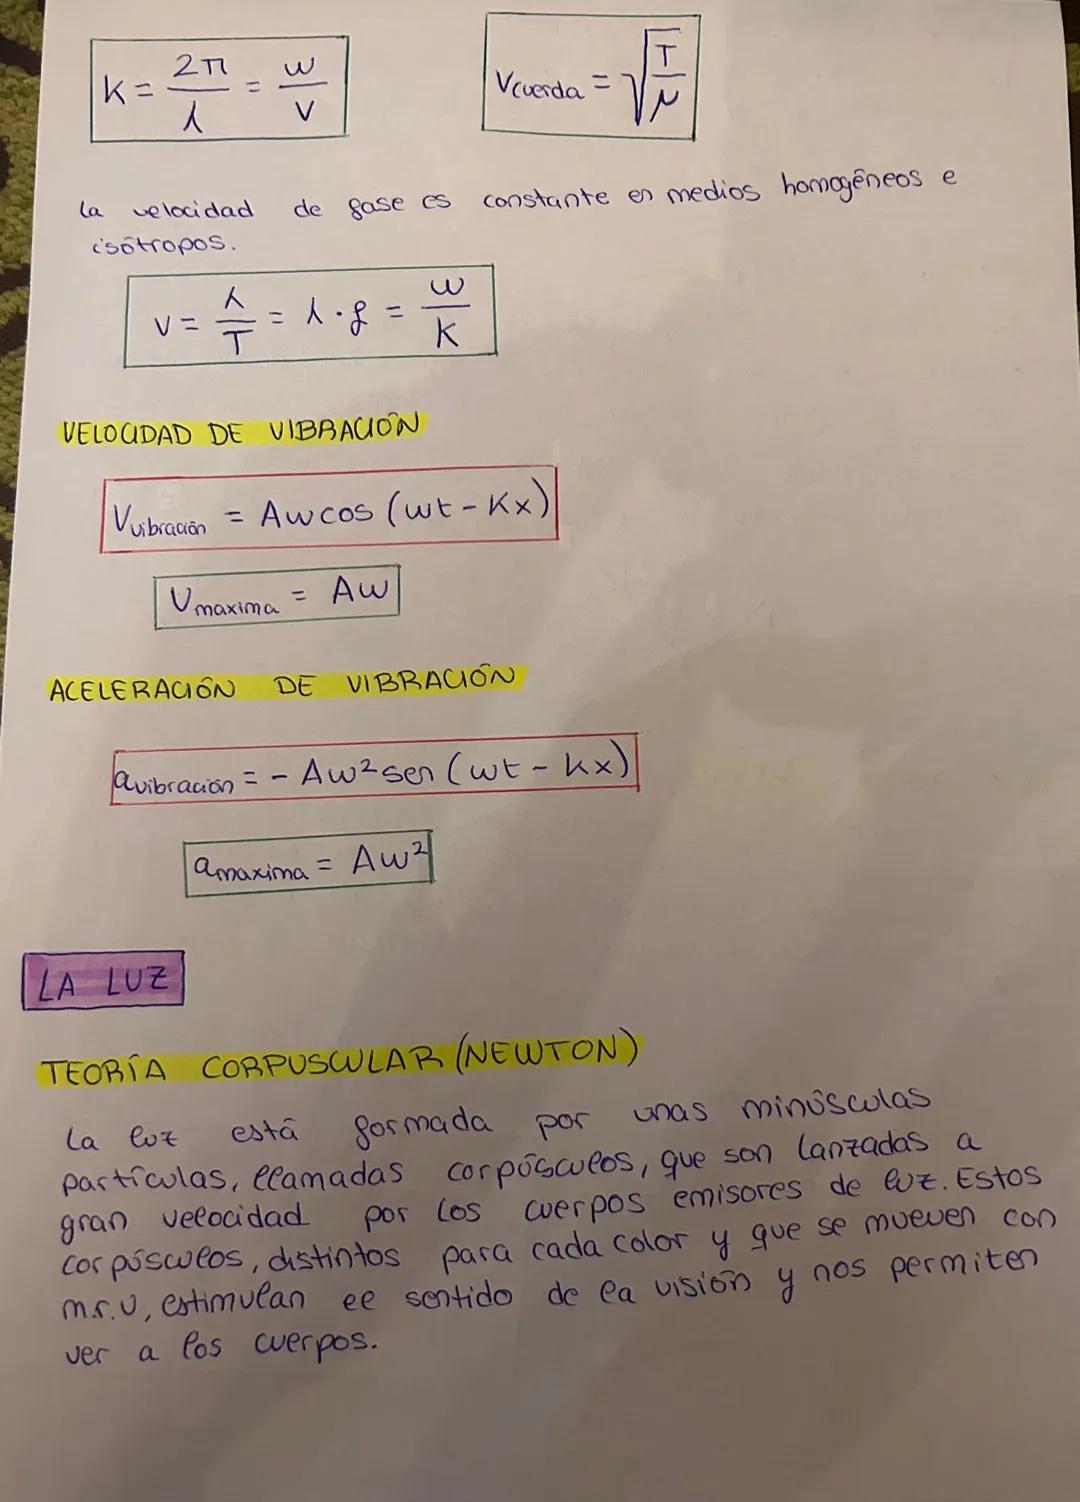 K = 2π/λ = w/v
Vcuerda = √(T/μ)
La velocidad de fase es constante en medios homogéneos e
isótropos.
v = λ/T = λ·f = w/K
VELOCIDAD DE VIBRACIÓN
Vvibración = Awcos (wt - Kx)
Vmaxima = Aw
ACELERACIÓN DE VIBRACIÓN
avibración = - Aw²sen (wt - kx)
amaxima = Aw²
LA LUZ
TEORÍA CORPUSCULAR (NEWTON)
La luz está formada por unas minúsculas
partículas, llamadas corpúsculos, que son lanzadas a
gran velocidad por los cuerpos emisores de luz. Estos
corpúsculos, distintos para cada color y que se mueven con
m.r.u, estimulan el sentido de la visión y nos permiten
ver a los cuerpos.